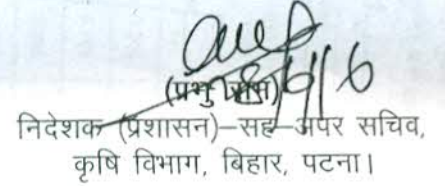 28/6/16
(प्रभु राम)
निदेशक (प्रशासन)–सह–अपर सचिव,
कृषि विभाग, बिहार, पटना।